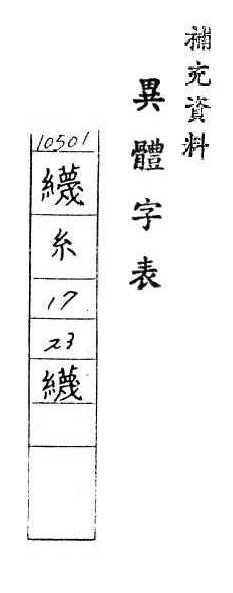 補充資料
異體字表
10501
糸
17
23